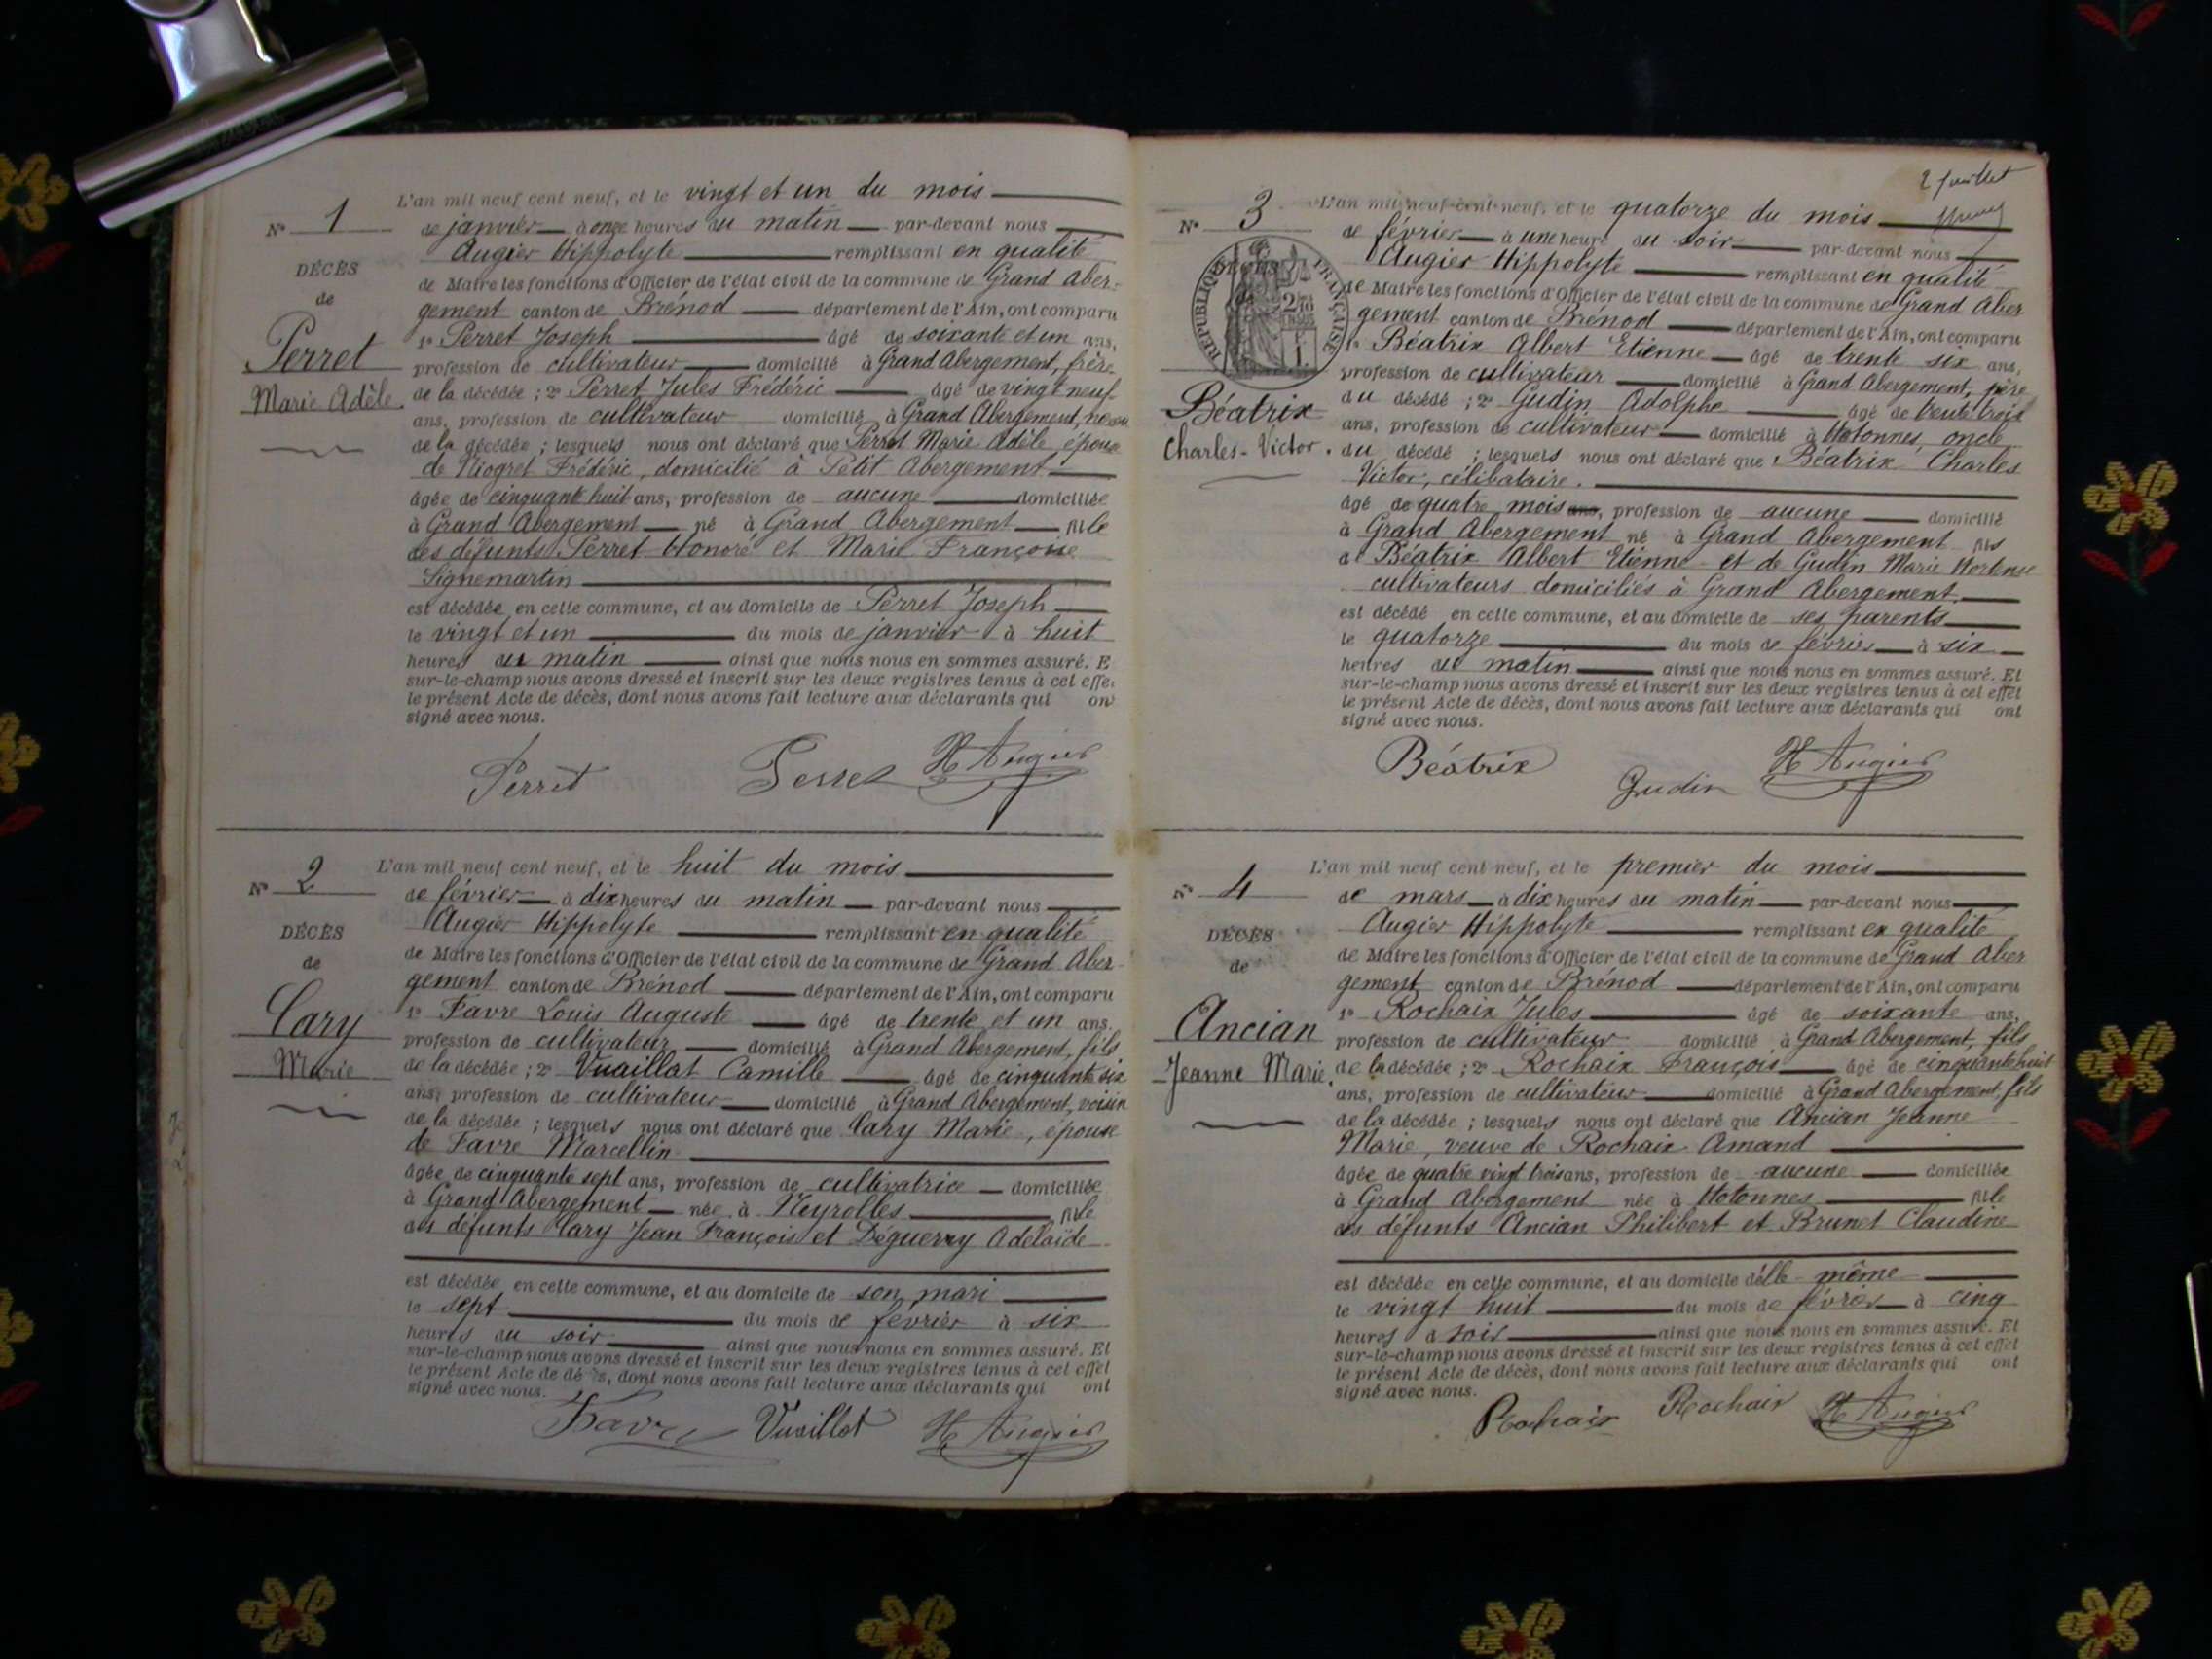 L'an mil neuf cent neuf, et le vingt et un du mois
N° 1 de janvier à onze heures du matin par-devant nous
Augier Hippolyte remplissant en qualité
DÉCÈS
de Maire les fonctions d'Officier de l'état civil de la commune de Grand Aber-
de
gement canton de Brénod département de l'Ain, ont comparu
1° Perret Joseph âgé de soixante et un ans,
Perret
profession de cultivateur domicilié à Grand Abergement, frère
Marie Adèle.
de la décédée ; 2° Perret Jules Frédéric âgé de vingt neuf
ans, profession de cultivateur domicilié à Grand Abergement, neveu
de la décédée ; lesquels nous ont déclaré que Perret Marie Adèle, épouse
de Niogret Frédéric, domicilié à Petit Abergement
âgée de cinquante huit ans, profession de aucune domiciliée
à Grand Abergement né à Grand Abergement fille
des défunts Perret Honoré et Marie Françoise
Signemartin
est décédée en cette commune, et au domicile de Perret Joseph
le vingt et un du mois de janvier à huit
heures du matin ainsi que nous nous en sommes assuré. E
sur-le-champ nous avons dressé et inscrit sur les deux registres tenus à cet effe
le présent Acte de décès, dont nous avons fait lecture aux déclarants qui on
signé avec nous.
Perret Perret H Augier
L'an mil neuf cent neuf, et le huit du mois
N° 2 de février à dix heures du matin par-devant nous
Augier Hippolyte remplissant en qualité
DÉCÈS
de Maire les fonctions d'Officier de l'état civil de la commune de Grand Aber-
de
gement canton de Brénod département de l'Ain, ont comparu
1° Favre Louis Auguste âgé de trente et un ans,
Cary
profession de cultivateur domicilié à Grand Abergement, fils
Marie
de la décédée ; 2° Vuaillat Camille âgé de cinquante six
ans, profession de cultivateur domicilié à Grand Abergement, voisin
de la décédée ; lesquels nous ont déclaré que Cary Marie, épouse
de Favre Marcellin
âgée de cinquante sept ans, profession de cultivatrice domiciliée
à Grand Abergement née à Neyrolles fille
des défunts Cary Jean François et Déguerry Adélaïde
est décédée en cette commune, et au domicile de son mari
le sept du mois de février à six
heures du soir ainsi que nous nous en sommes assuré. Et
sur-le-champ nous avons dressé et inscrit sur les deux registres tenus à cet effet
le présent Acte de décès, dont nous avons fait lecture aux déclarants qui ont
signé avec nous.
Favre Vuaillat H Augier
2 juillet
L'an mil neuf cent neuf, et le quatorze du mois
N° 3 de février à une heure du soir par-devant nous
Augier Hippolyte remplissant en qualité
RÉPUBLIQUE FRANÇAISE
de Maire les fonctions d'Officier de l'état civil de la commune de Grand Aber
gement canton de Brénod département de l'Ain, ont comparu
1° Béatrix Albert Etienne âgé de trente six ans,
profession de cultivateur domicilié à Grand Abergement, père
Béatrix
du décédé ; 2° Gudin Adolphe âgé de trente trois
ans, profession de cultivateur domicilié à Hotonnes, oncle
Charles-Victor.
du décédé ; lesquels nous ont déclaré que Béatrix Charles
Victor, célibataire.
âgé de quatre mois ans, profession de aucune domicilié
à Grand Abergement né à Grand Abergement fils
de Béatrix Albert Etienne et de Gudin Marie Hortense
cultivateurs domiciliés à Grand Abergement.
est décédé en cette commune, et au domicile de ses parents
le quatorze du mois de février à six
heures du matin ainsi que nous nous en sommes assuré. Et
sur-le-champ nous avons dressé et inscrit sur les deux registres tenus à cet effet
le présent Acte de décès, dont nous avons fait lecture aux déclarants qui ont
signé avec nous.
Béatrix Gudin H Augier
L'an mil neuf cent neuf, et le premier du mois
N° 4 de mars à dix heures du matin par-devant nous
Augier Hippolyte remplissant en qualité
DÉCÈS
de Maire les fonctions d'Officier de l'état civil de la commune de Grand Aber
de
gement canton de Brénod département de l'Ain, ont comparu
1° Rochaix Jules âgé de soixante ans,
Ancian
profession de cultivateur domicilié à Grand Abergement, fils
Jeanne Marie.
de la décédée ; 2° Rochaix François âgé de cinquante huit
ans, profession de cultivateur domicilié à Grand Abergement, fils
de la décédée ; lesquels nous ont déclaré que Ancian Jeanne
Marie, veuve de Rochaix Amand
âgée de quatre vingt trois ans, profession de aucune domiciliée
à Grand Abergement née à Hotonnes fille
des défunts Ancian Philibert et Brunet Claudine
est décédée en cette commune, et au domicile d'elle-même
le vingt huit du mois de février à cinq
heures d soir ainsi que nous nous en sommes assuré. Et
sur-le-champ nous avons dressé et inscrit sur les deux registres tenus à cet effet
le présent Acte de décès, dont nous avons fait lecture aux déclarants qui ont
signé avec nous.
Rochaix Rochaix H Augier